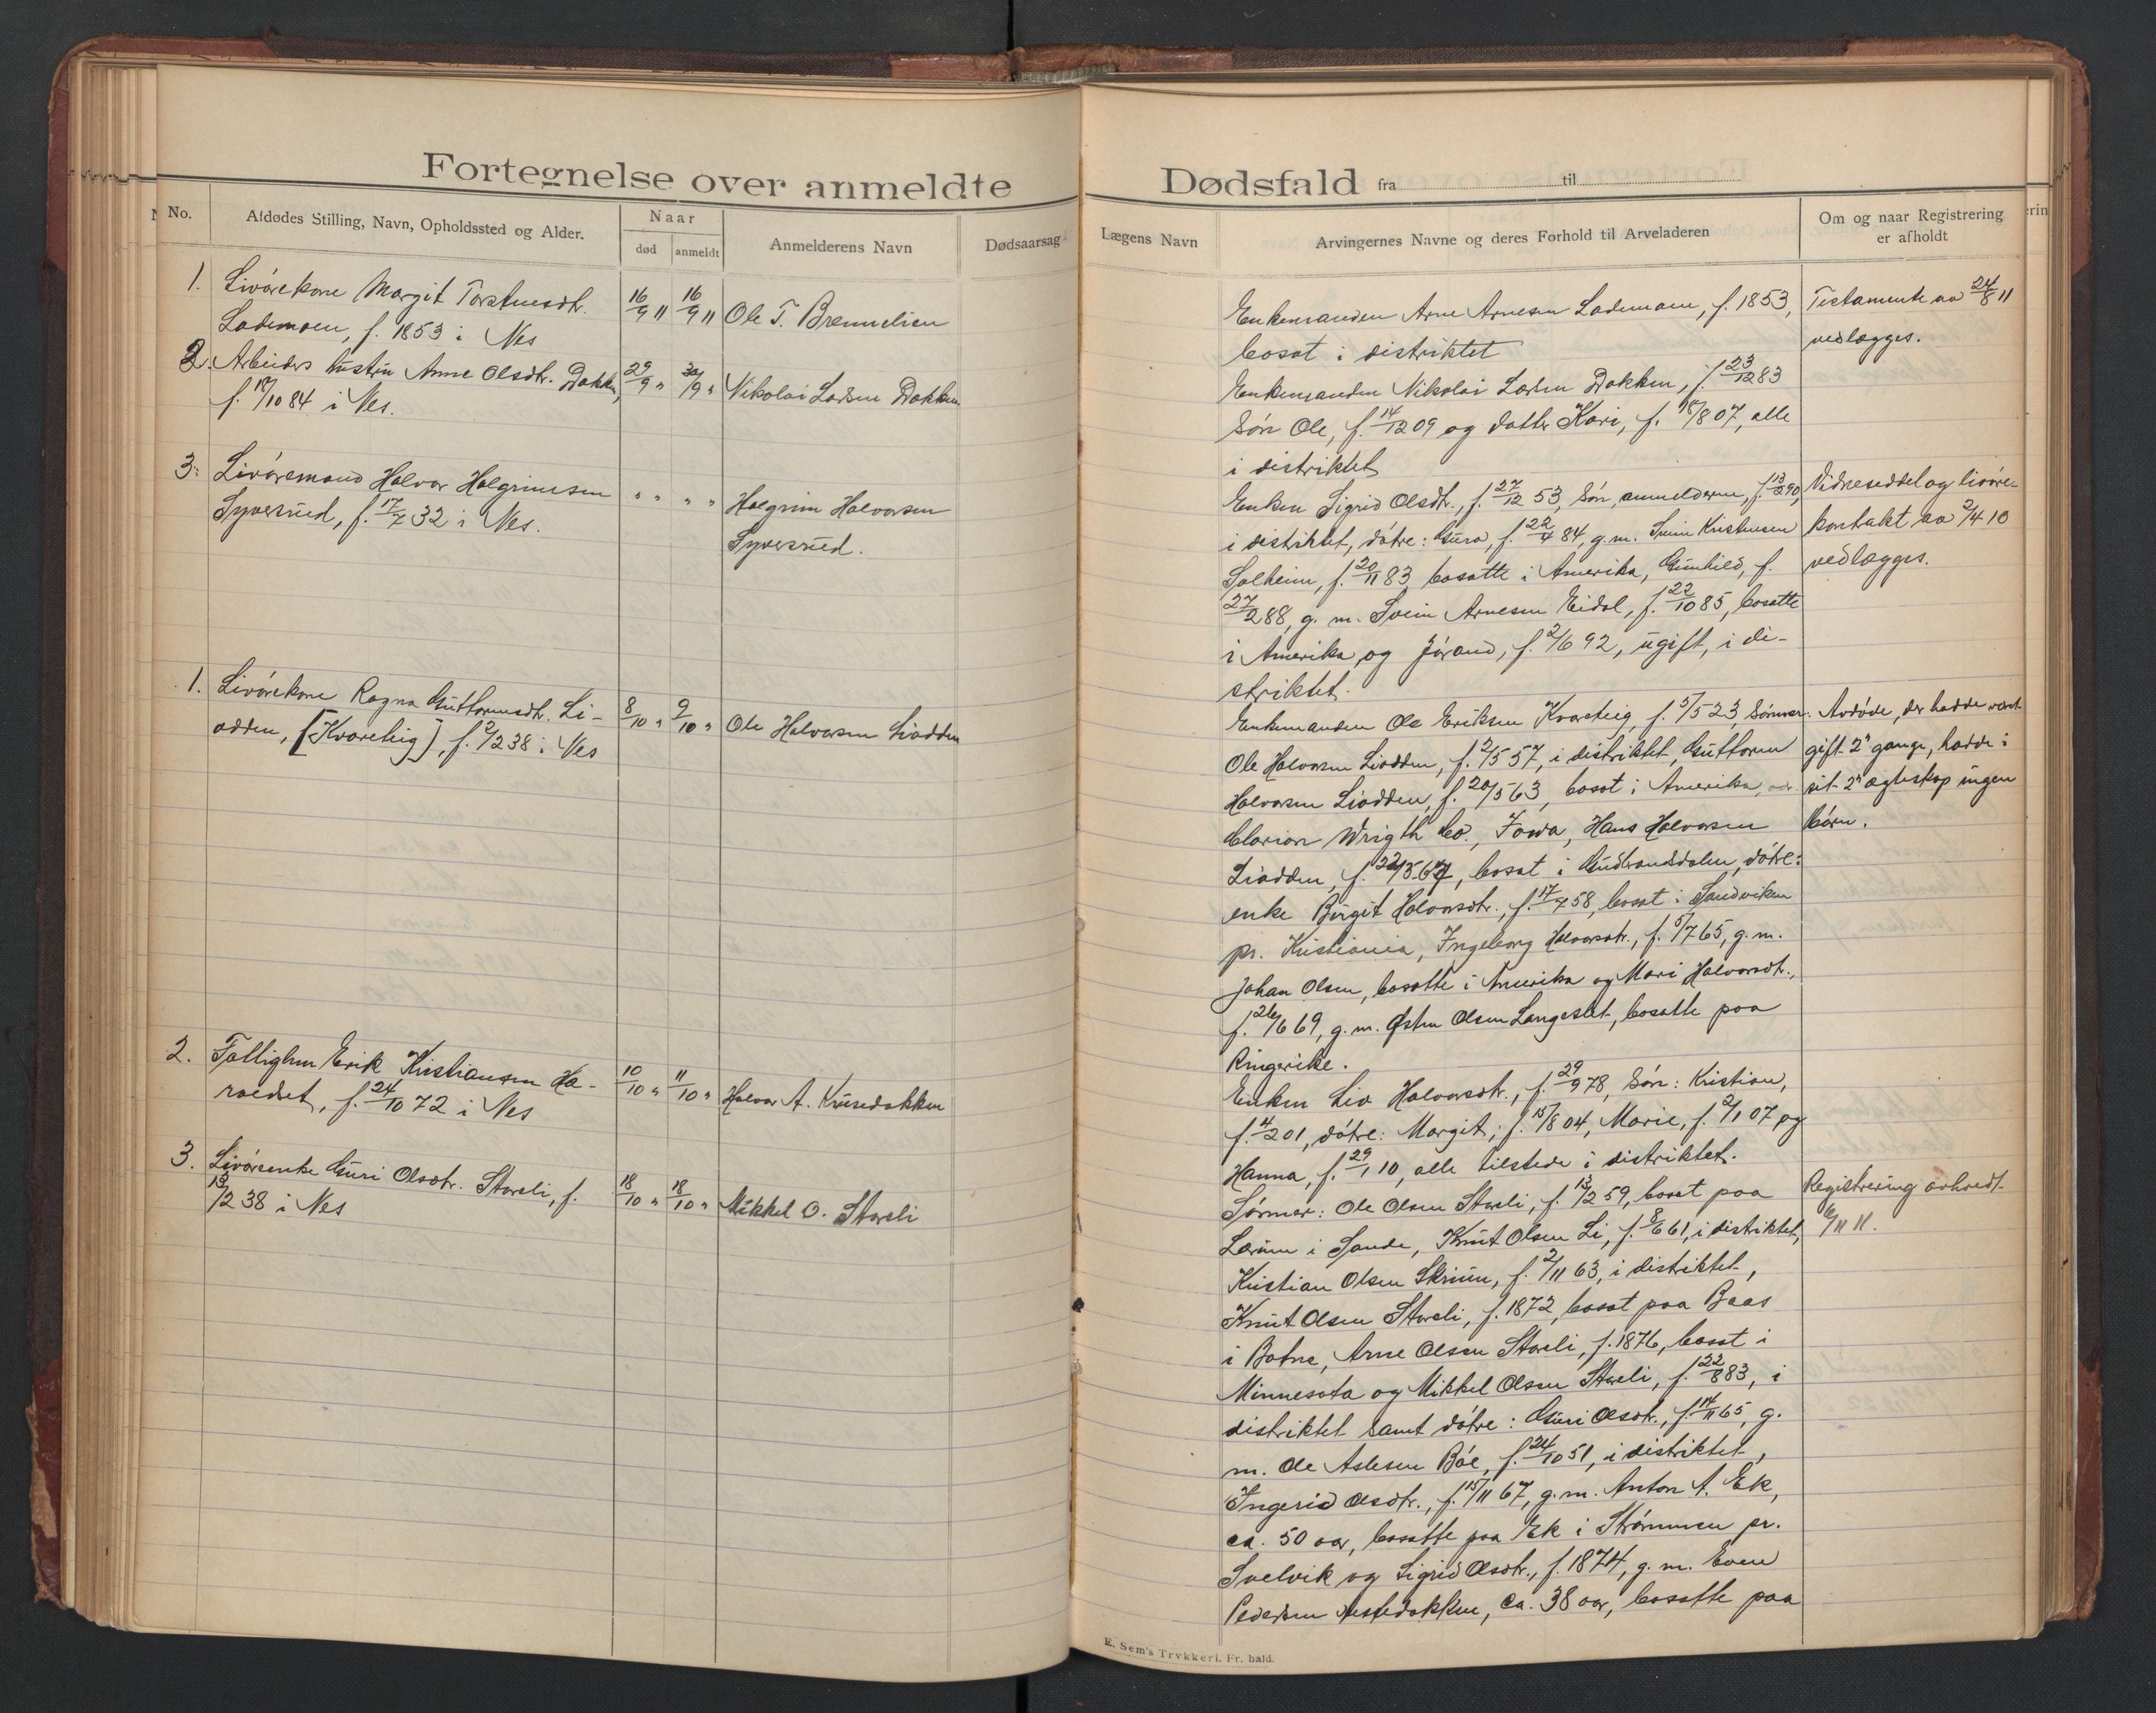 Fortegnelse over anmeldte
No.
Afdødes Stilling, Navn, Opholdssted og Alder.
Naar
død
anmeldt
Anmelderens Navn
Dødsaarsag
1. Livörekone Margit Torstensdtr. 16/9 11 16/9 11 Ole T. Brennelien
Lademoen, f. 1853 i Nes
2. Arbeiders hustru Anne Olsdtr. Dokken, 29/9 " 30/9 " Nikolai Larsen Dokken
f. 18/10 84 i Nes.
3. Livöremand Halvor Halgrimsen " " " " Halgrim Halvorsen
Syversrud, f. 17/7 32 i Nes. Syversrud.
1. Livörekone Ragna Guttormsdtr. Li- 8/10 " 9/10 " Ole Halvorsen Liodden
odden, [Kvarteig], f. 2/2 38 i Nes
2. Fattiglem Erik Kristiansen Ha- 10/10 " 11/10 " Halvor A. Krusedokken
roldset, f. 24/10 72 i Nes
3. Livöreenke Guri Olsdtr. Storeli, f. 18/10 " 18/10 " Mikkel O. Storeli
13/2 38 i Nes
Dødsfald fra til
Lægens Navn
Arvingernes Navne og deres Forhold til Arveladeren
Om og naar Registrering
er afholdt
Enkemanden Arne Arnesen Lademoen, f. 1853, Testamente av 24/8 11
bosat i distriktet vedlægges.
Enkemanden Nikolai Larsen Dokken, f. 23/12 83
Sön Ole, f. 14/12 09 og datter Kari, f. 18/8 07, alle
i distriktet
Enken Sigrid Olsdtr., f. 27/12 53, Sön, anmelderen, f. 13/3 90, Vidneseddel og livöre-
i distriktet, dötre: Guro, f. 22/4 84, g.m. Svein Kristensen kontakt av 2/4 10
Solheim, f. 20/11 83 bosatte i Amerika, Gunhild, f. vedlægges.
27/2 88, g. m. Svein Arnesen Eidal, f. 22/10 85, bosatte
i Amerika og Jörand, f. 2/6 92, ugift, i di-
striktet.
Enkemanden Ole Eriksen Kvarteig, f. 5/5 23 Sönner: Avdöde, der hadde vært
Ole Halvorsen Liodden, f. 2/5 57, i distriktet, Guttorm gift 2" gange, hadde i
Halvorsen Liodden, f. 20/5 63, bosat i Amerika, adr. sit 2" ægteskap ingen
Clarion Wrigth Co., Iowa, Hans Halvorsen börn.
Liodden, f. 22/5 67, bosat i Gudbrandsdalen, dötre:
enke Birgit Halvorsdtr., f. 17/7 58, bosat i Sandviken
pr. Kristiania, Ingeborg Halvorsdtr., f. 5/7 65, g.m.
Johan Olsen, bosatte i Amerika og Mari Halvorsdtr.,
f. 26/6 69, g.m. Østen Olsen Langeslet, bosatte paa
Ringerike.
Enken Liv Halvorsdtr., f. 29/9 78, Sön: Kristian,
f. 4/2 01, dötre: Margit, f. 15/8 04, Marie, f. 2/1 07 og
Hanna, f. 29/1 10, alle tilstede i distriktet.
Sönner: Ole Olsen Storeli, f. 13/2 59, bosat paa Registrering avholdt
Lærum i Sande, Knut Olsen Li, f. 8/6 61, i distriktet, 6/11 11.
Kristian Olsen Skrium, f. 2/11 63, i distriktet,
Knut Olsen Storeli, f. 1872, bosat paa Baas
i Botne, Arne Olsen Storeli, f. 1876, bosat i
Minnesota og Mikkel Olsen Storeli, f. 22/8 83, i
distriktet samt dötre: Guri Olsdtr., f. 14/11 65, g.
m. Ole Aslesen Böe, f. 24/10 51, i distriktet,
Ingerid Olsdtr., f. 15/11 67, g.m. Anton A. Ek,
ca. 50 aar, bosatte paa Ek i Strömmen pr.
Svelvik og Sigrid Olsdtr., f. 1874, g. m. Even
Pedersen , ca. 38 aar, bosatte paa
E. Sem's Trykkeri, Fr. hald.